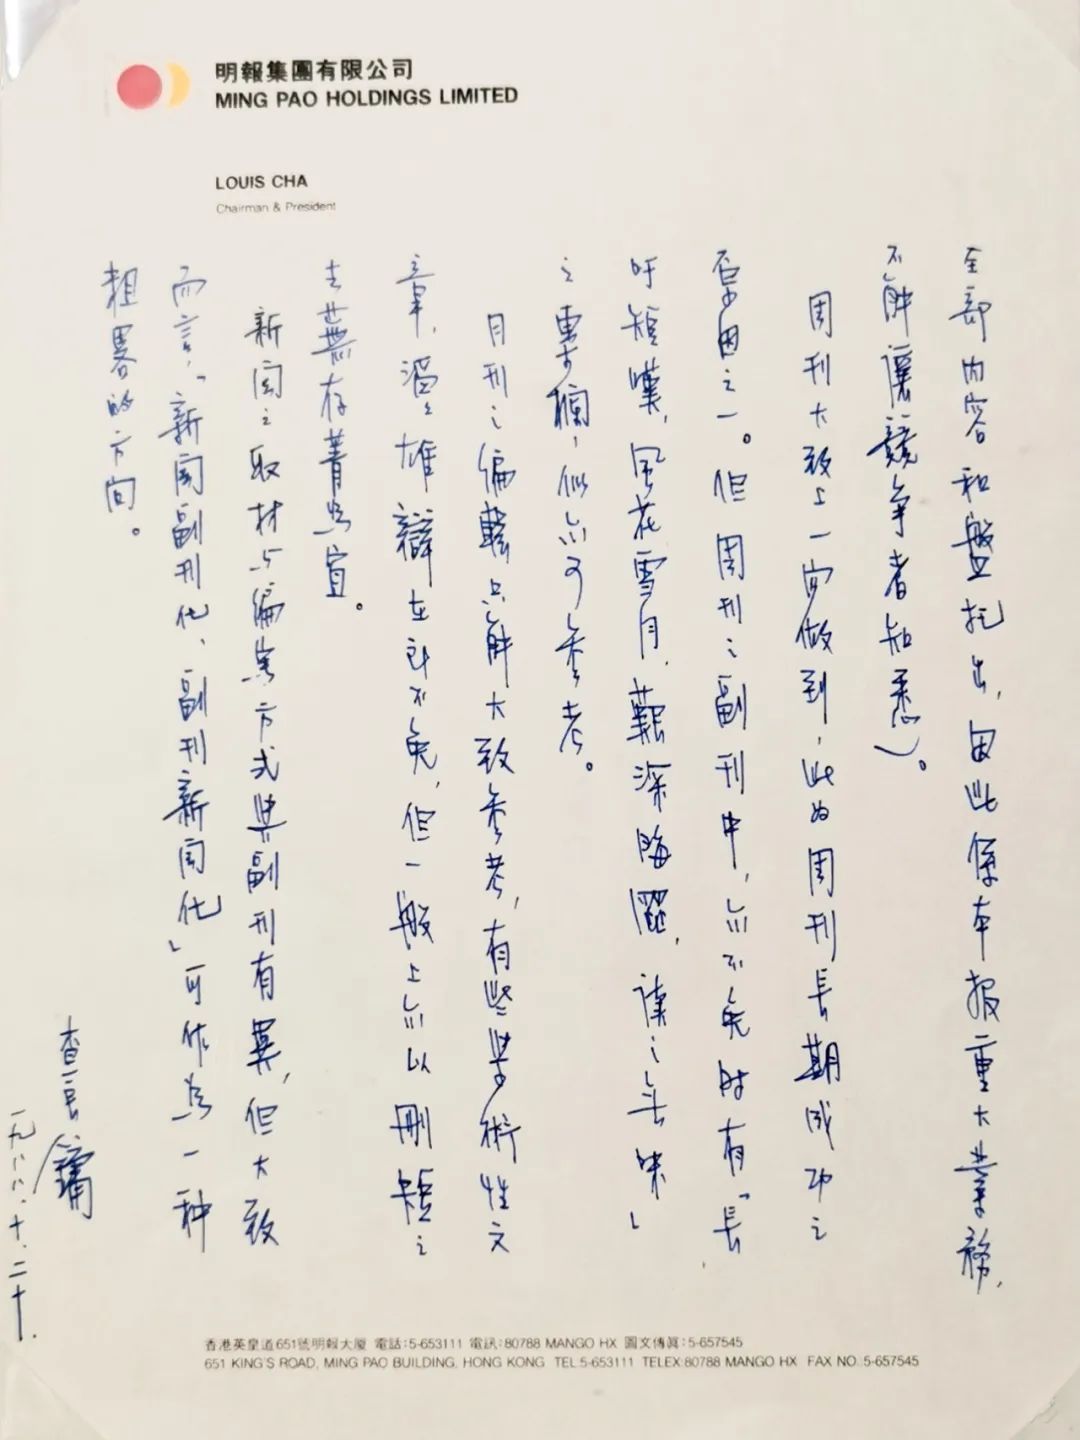 明報集團有限公司
MING PAO HOLDINGS LIMITED
LOUIS CHA
Chairman & President
全部內容和盤托出,因此係本报重大業務,
不能讓競争者知悉)。
周刊大致上一向做到,此为周刊長期成功之
原因之一。但周刊之副刊中,亦不免时有「長
吁短嘆,風花雪月,艱深晦澀,讀之無味」
之專欄,似亦可参考。
月刊之偏轉只能大致参考,有些学術性文
章,滔滔雄辯在所不免,但一般上亦以刪短之
去蕪存菁為宜。
新闻之取材与编寫方式与副刊有異,但大致
而言,「新闻副刊化、副刊新闻化」可作為一种
粗畧的方向。
查良鏞
一九八八、十、二十.
香港英皇道651號明報大廈 電話:5-653111 電訊:80788 MANGO HX 圖文傳真:5-657545
651 KING'S ROAD, MING PAO BUILDING, HONG KONG TEL:5-653111 TELEX:80788 MANGO HX FAX NO.:5-657545